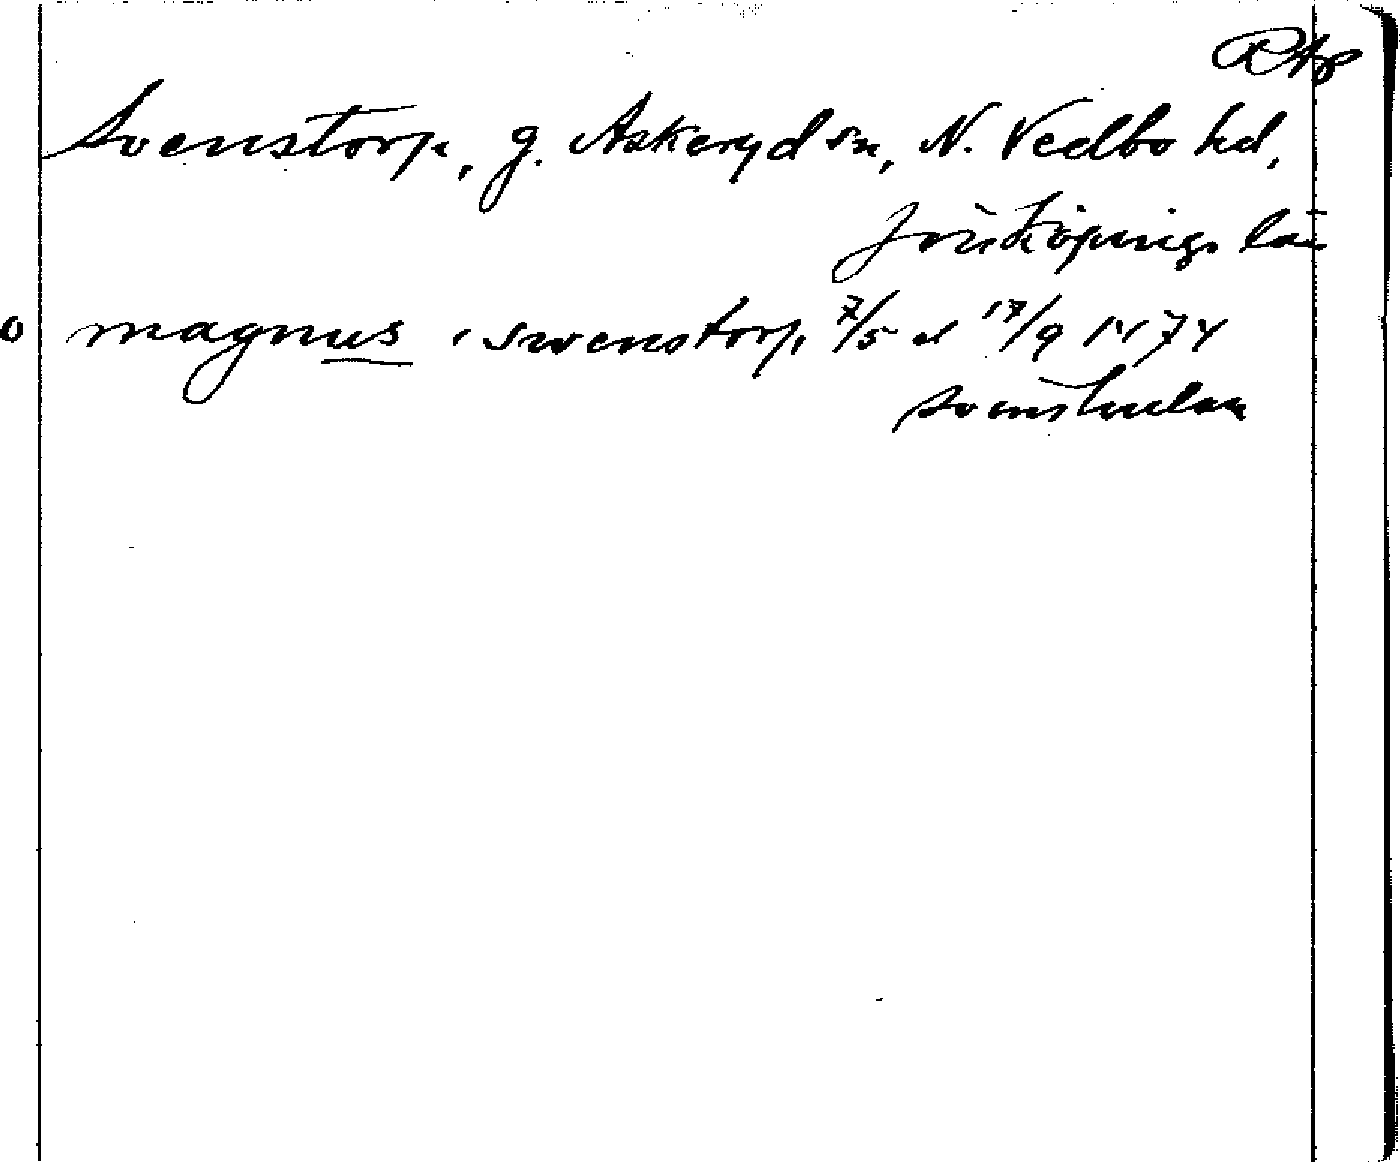 RAp
Svenstorp, g. Askeryd sn, N. Vedbo hd,
Jönköpings län
o magnus i swenstorp 7/5 el 17/9 1474